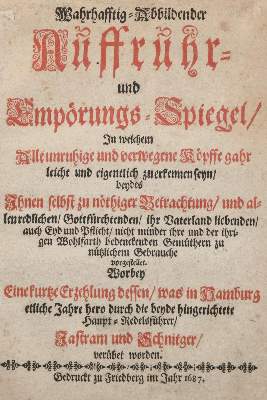 Wahrhafftig-Abbildender
Auffruhr-
und
Empörungs-Spiegel/
In welchem
Alle unruhige und verwegene Köpffe gahr
leicht und eigentlich zu erkennen seyn/
beydes
Ihnen selbst zu nöthiger Betrachtung/ und al-
len redlichen/ Gottfürchtenden/ ihr Vaterland liebenden/
auch Eyd und Pflicht/ nicht minder ihre und der ihri-
gen Wohlfarth bedenckenden Gemüthern zu
nützlichem Gebrauche
vorgestellet.
Worbey
Eine kurtze Erzehlung dessen/ was in Hamburg
etliche Jahre hero durch die beyde hingerichtete
Haupt-Redelsführer/
Jastram und Schnitger/
verübet worden.
Gedruckt zu Friedberg im Jahr 1687.